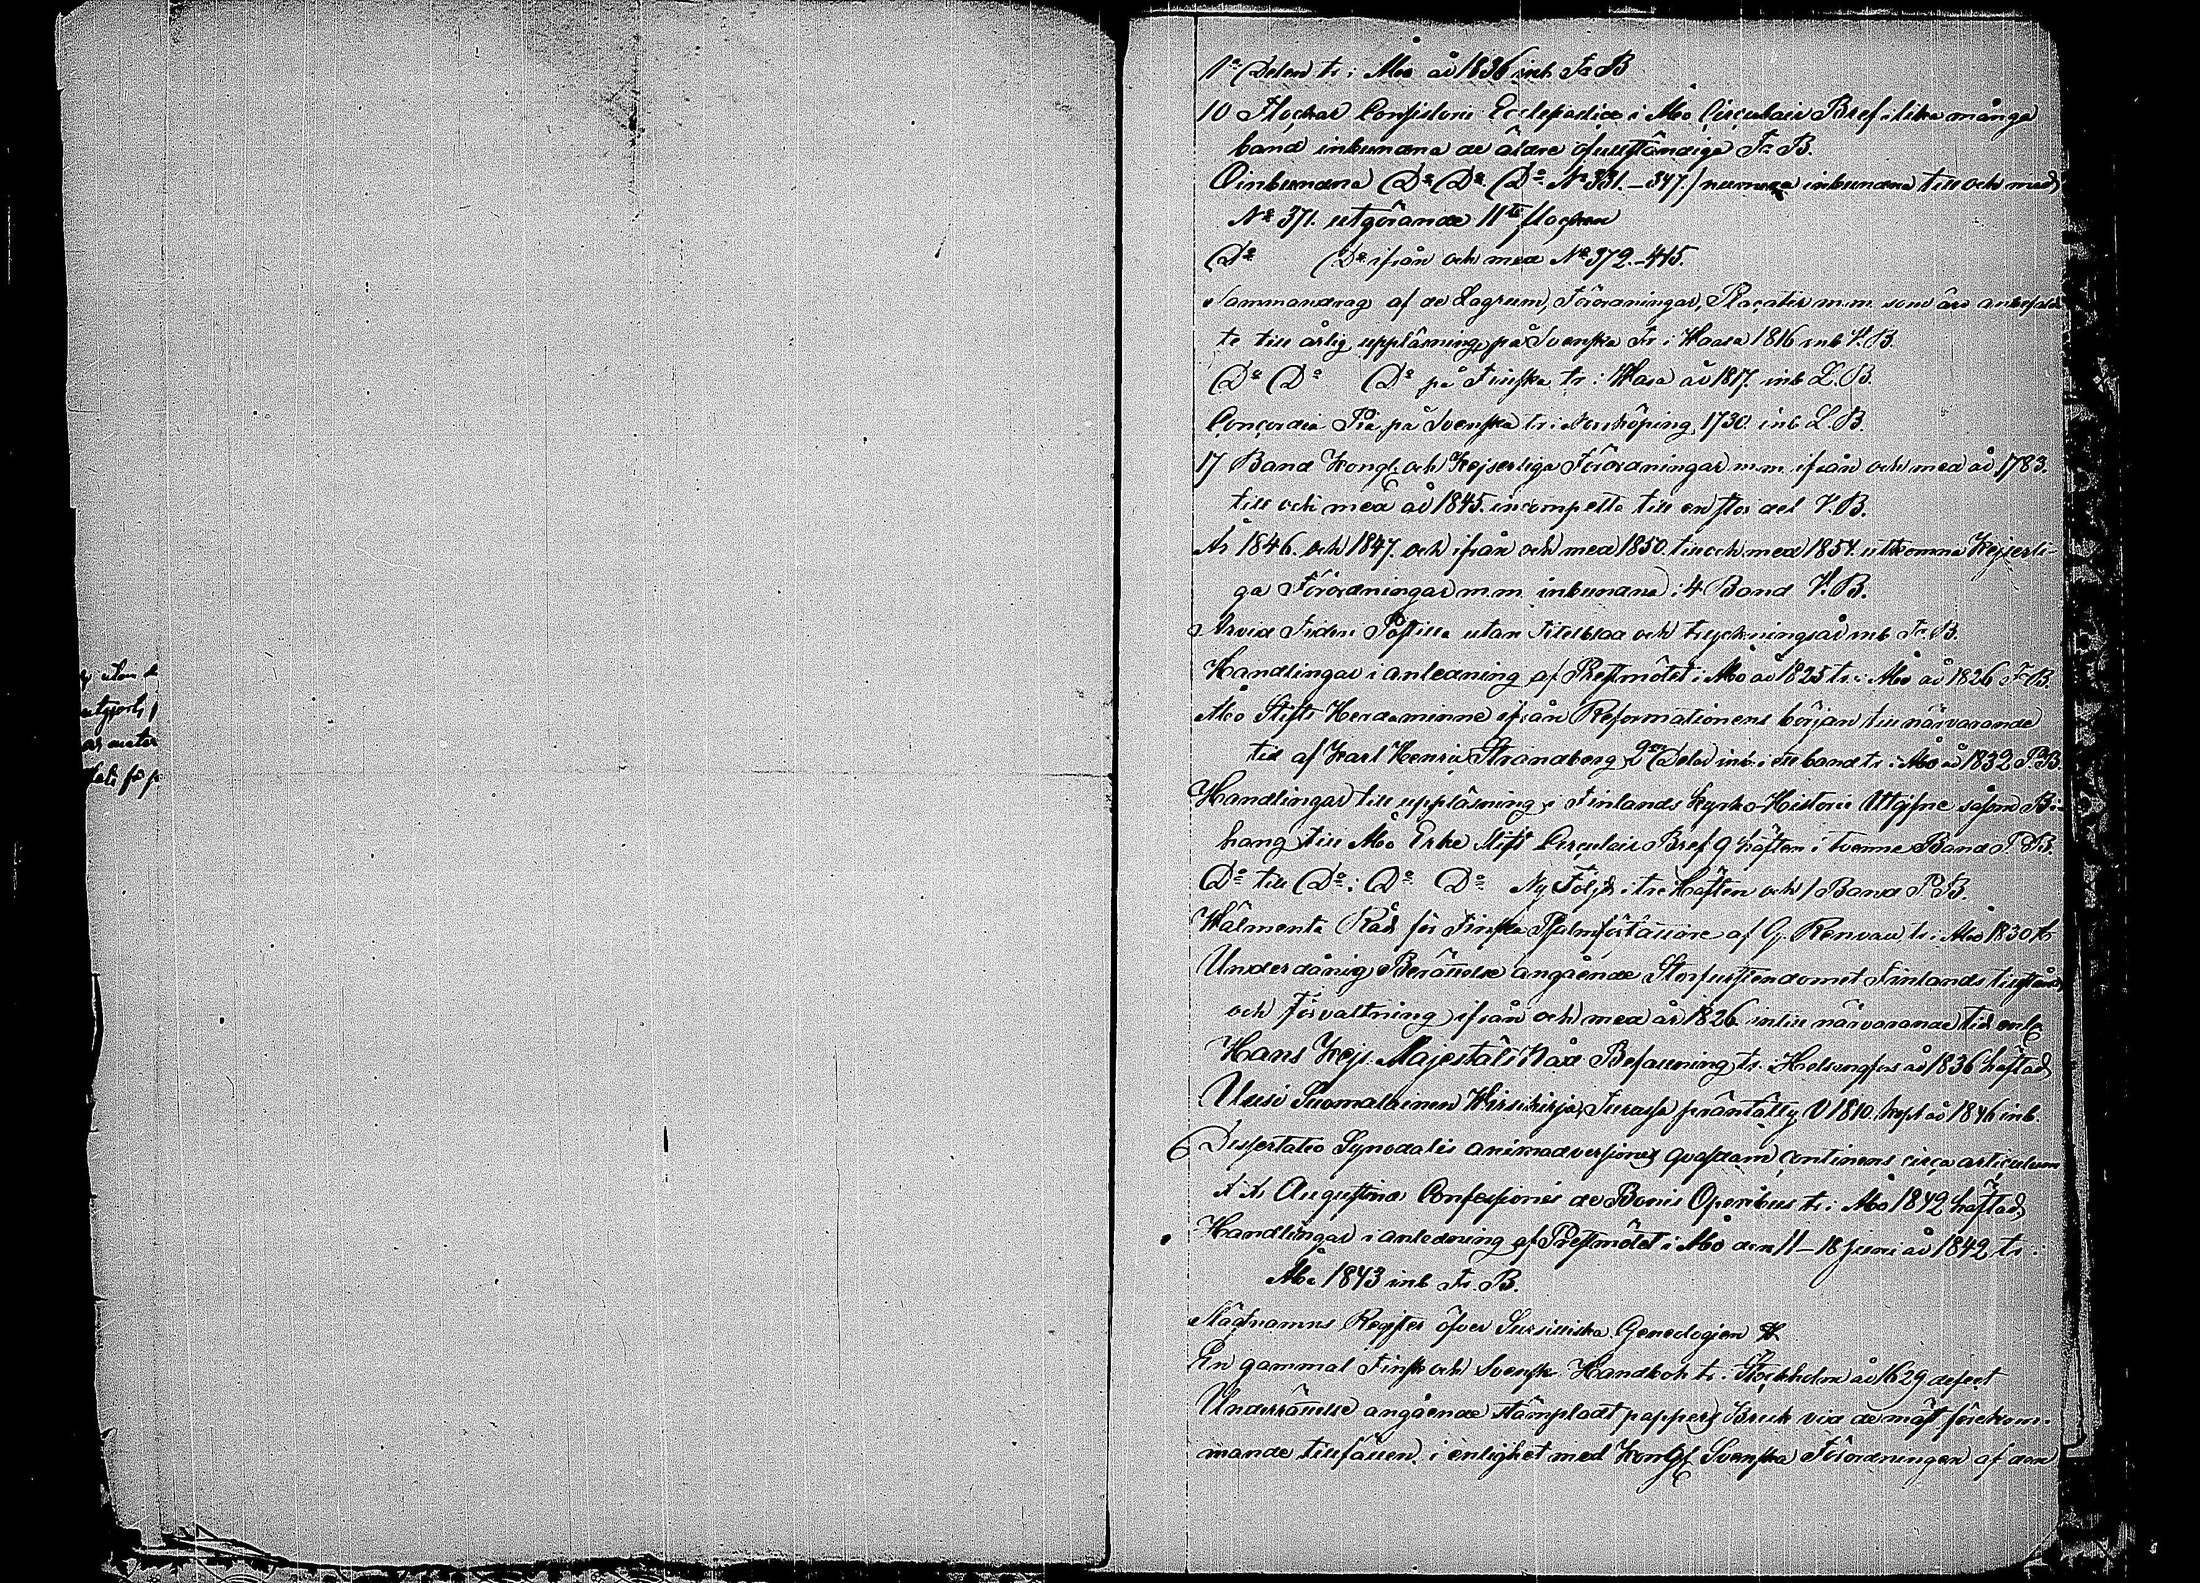 utom
utgjort
1a Delen tr. i Åbo år 1836 inb. Fr. B
10 Flockar Consistorii Ecclesiastici i Åbo Circulair Bref i lika många
band inbundna de äldre ofullständiga Fr. B.
Oinbundna Do Do Do No 331.–347. / numera inbundna till och med
No 371. utgörande 11te flocken
Do Do ifrån och med No 372.–415.
Sammandrag af de Lagrum, Förordningar, Placater m.m. som äro anbefal-
te till årlig uppläsning på Svenska tr. i Wasa 1816 inb. V. B.
Do Do Do på Finska tr. i Wasa år 1817. inb. L. B.
Concordia Pia på Svenska tr. i Norrköping 1730. inb. L. B.
17 Band Kongl. och Kejserliga Förordningar m.m. ifrån och med år 1783.
till och med år 1845. incompletta till en stor del V. B.
År 1846. och 1847. och ifrån och med 1850. till och med 1854. utkomna Kejserli-
ga Förordningar m.m. inbundna i 4 Band V. B.
Arvid Postilla utan Titelblad och tryckningsår inb. Fr. B.
Handlingar i anledning af Prestmötet i Åbo år 1825 tr. i Åbo år 1826 Fr. B.
Åbo Stifts Herdaminne ifrån Reformationens början till närvarande
tid af Karl Henric Strandberg 2ne Delar inb. i ett band tr. i Åbo år 1832 P. B.
Handlingar till upplysning i Finlands Kyrko-Historie Utgifne såsom Bi-
hang till Åbo Erke Stifts Circulair Bref 9 häften i tvenne Band P. B.
Do till Do i Do Do Ny Följd i tre häften och 1 Band P. B.
Wälmenta Råd för Finska Psalmförfattare af G. Renvall tr. i Åbo 1830
Underdånig Berättelse angående Storfurstendomet Finlands tillstånd
och förvaltning ifrån och med år 1826 intill närvarande tid enl.
Hans Kejs. Majestäts Nåd. Befallning tr. i Helsingfors år 1836 häftad
Uusi Suomalainen Wirsikirja, Turussa präntätty V 1810. köpt år 1846 inb.
Dissertatio Synodalis animadversiones quasdam continens circa articulum
Augustinæ Confessionis de Bonis Operibus tr. i Åbo 1842 häftad
Handlingar i anledning af Prestmötet i Åbo den 11–18 Juni år 1842 tr. i
Åbo 1843 inb. Fr. B.
Slägtnamns Register öfver Sursilliska Geneologien
En gammal Finsk och Svensk Handbok tr. i Stockholm år 1629 defect
Underrättelse angående stämpladt pappers Bruk vid de mäst förekom-
mande tillfällen, i enlighet med Kongl. Svenska Förordningen af den